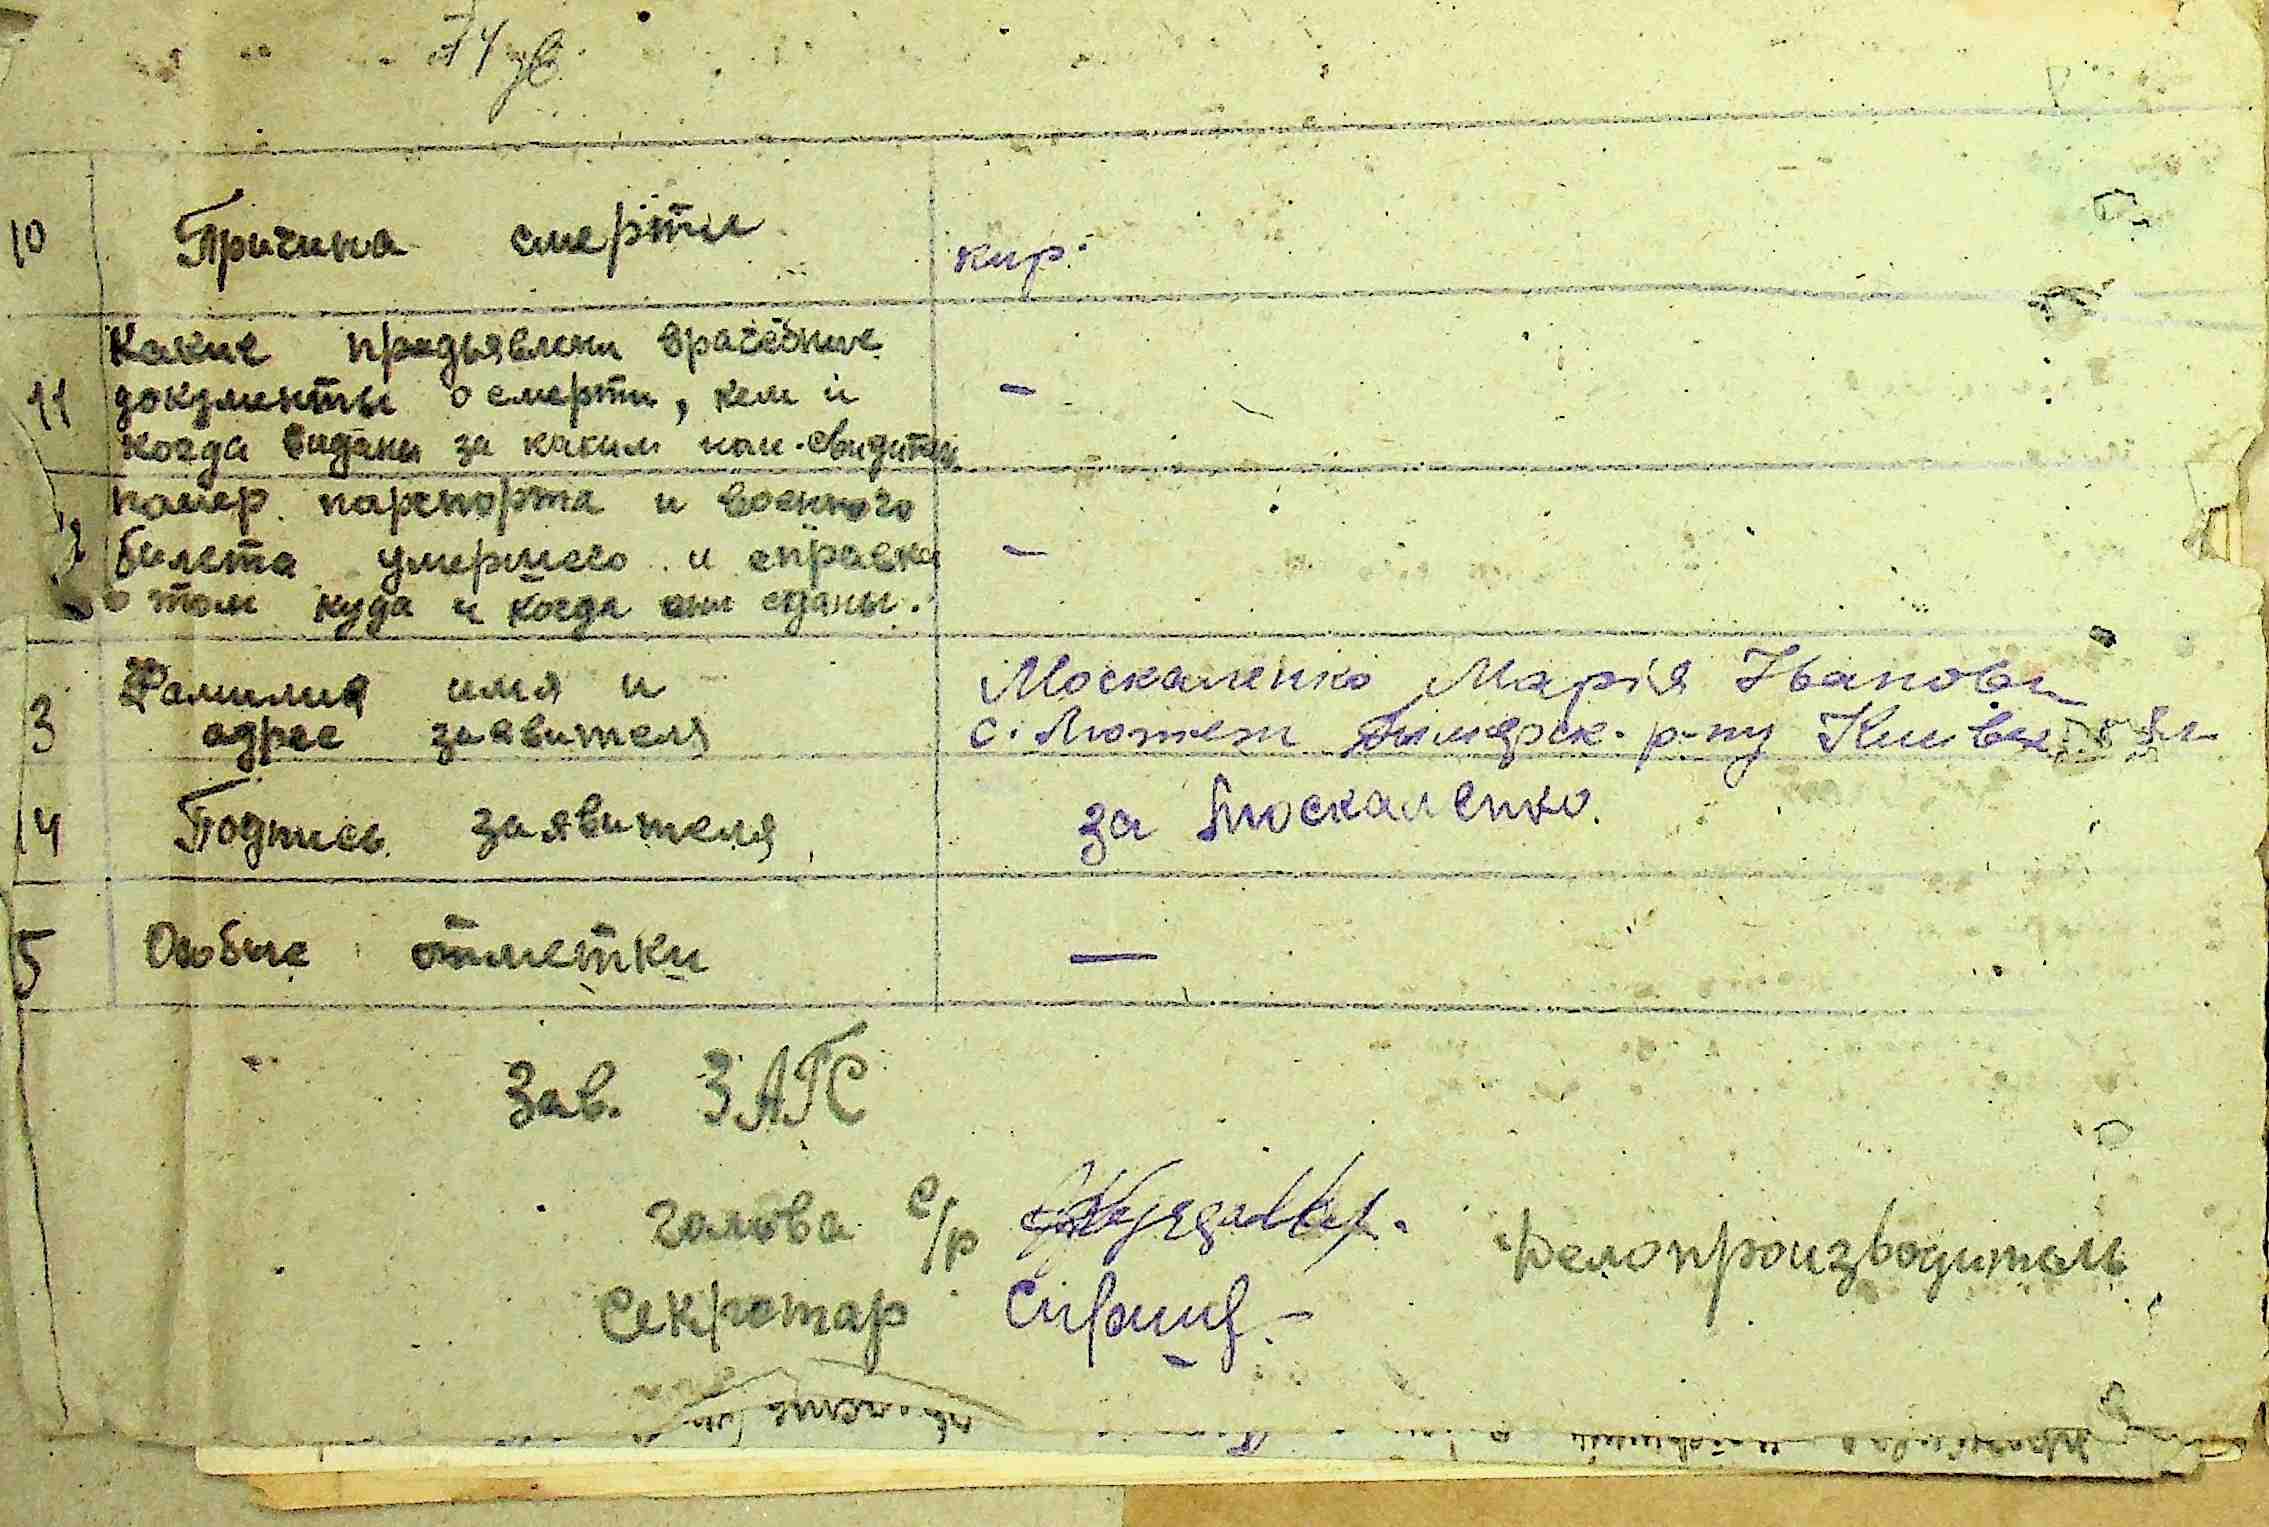 74 зв
10 Причина смерти кир.
Какие предьявлени врачебние
11 документы о смерти, кем и –
когда видани за каким ном. свидител
номер парспорта и военного
билета умершего и справка –
о том куда и когда они сданы.
Фамилия имя и Москаленко Марія Іванови
3 адрес заявителя с. Лютеж Димерск. р-ну Киівск.
14 Подпись заявителя за Москаленко.
5 Особые отметки —
Зав. ЗАГС
Голова с/р Делопроизводитель
Секретар